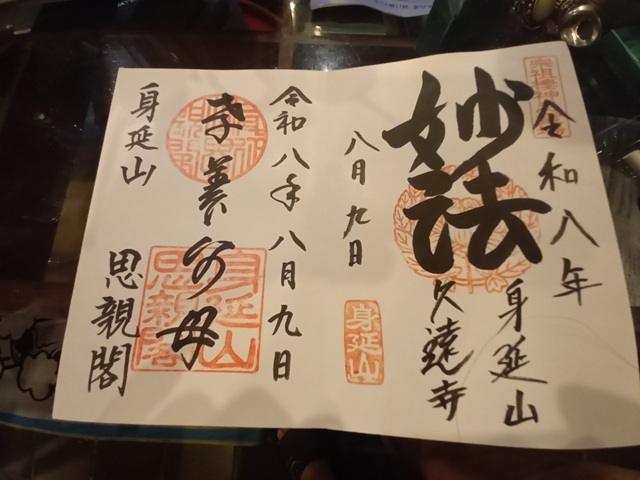 令和八年
八月九日
妙法
身延山
久遠寺
身延山
令和八年八月九日
孝養父母
身延山
思親閣
身延山
思親閣